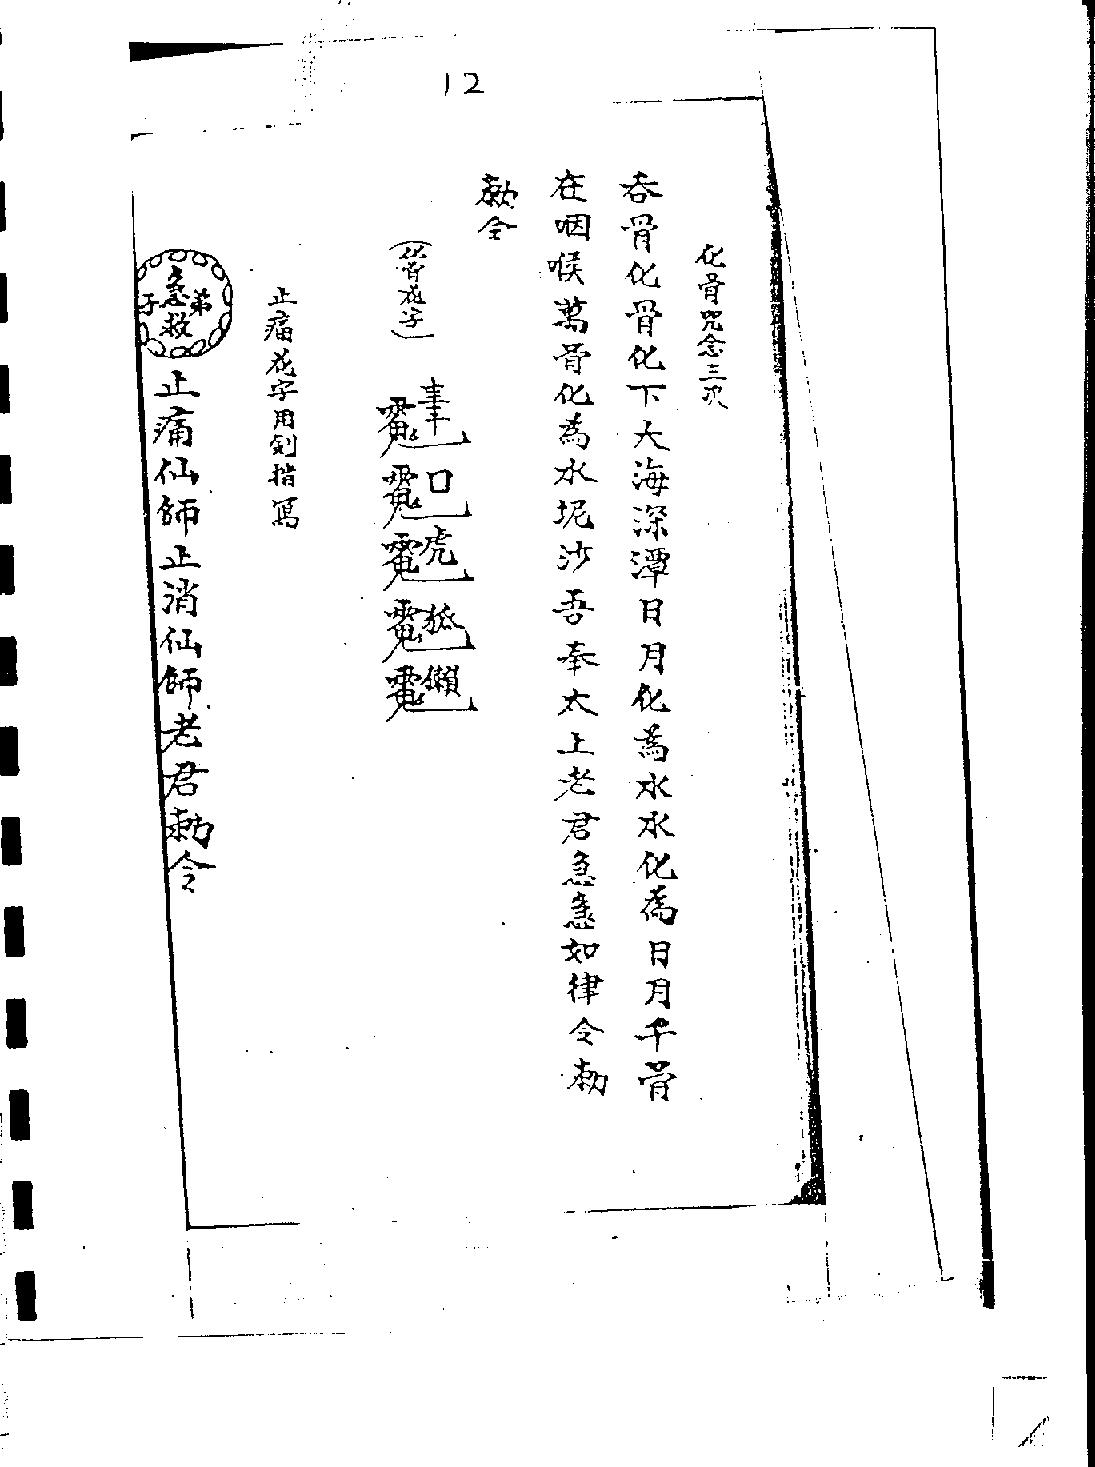 12
化骨咒念三次
吞骨化骨化下大海深潭日月化為水水化為日月千骨
在咽喉萬骨化為水坭沙吾奉太上老君急急如律令勅
勅令
(化骨花字)
口
虎
狐
獺
止痛花字用剑指寫
弟子急救
止痛仙師止消仙師老君勅令